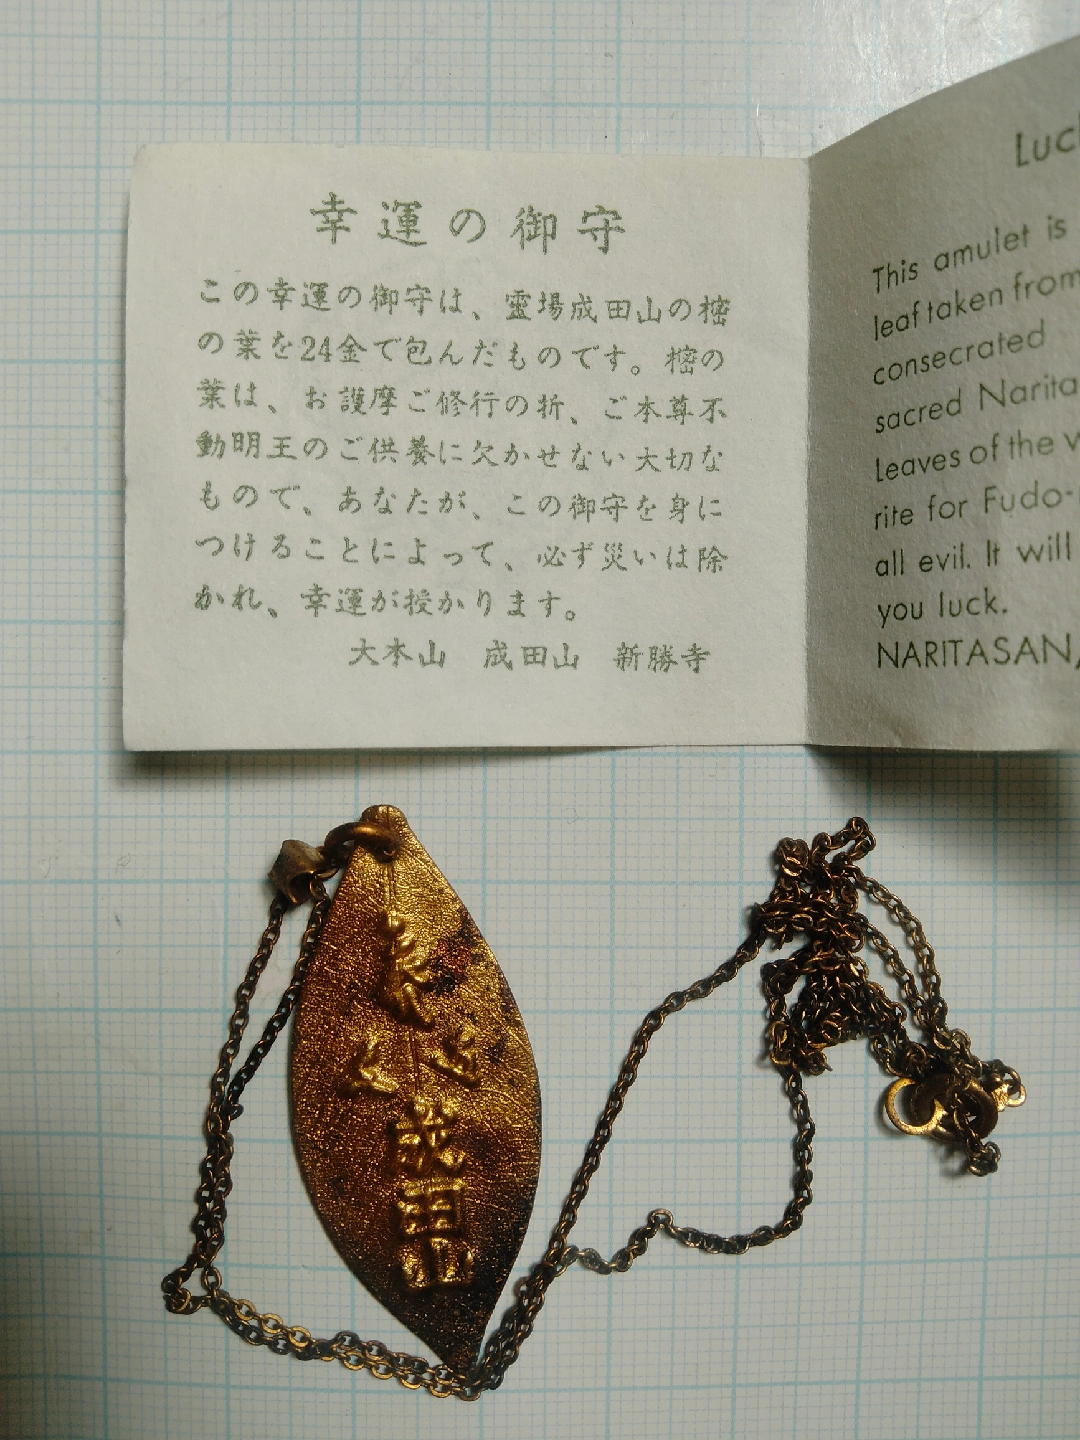 幸運の御守
この幸運の御守は、霊場成田山の樒
の葉を24金で包んだものです。樒の
葉は、お護摩ご修行の折、ご本尊不
動明王のご供養に欠かせない大切な
もので、あなたが、この御守を身に
つけることによって、必ず災いは除
かれ、幸運が授かります。
大本山 成田山 新勝寺
Luc
This amulet is
leaf taken from
consecrated
sacred Narita
Leaves of the
rite for Fudo-
all evil. It will
you luck.
NARITASAN,
成田山